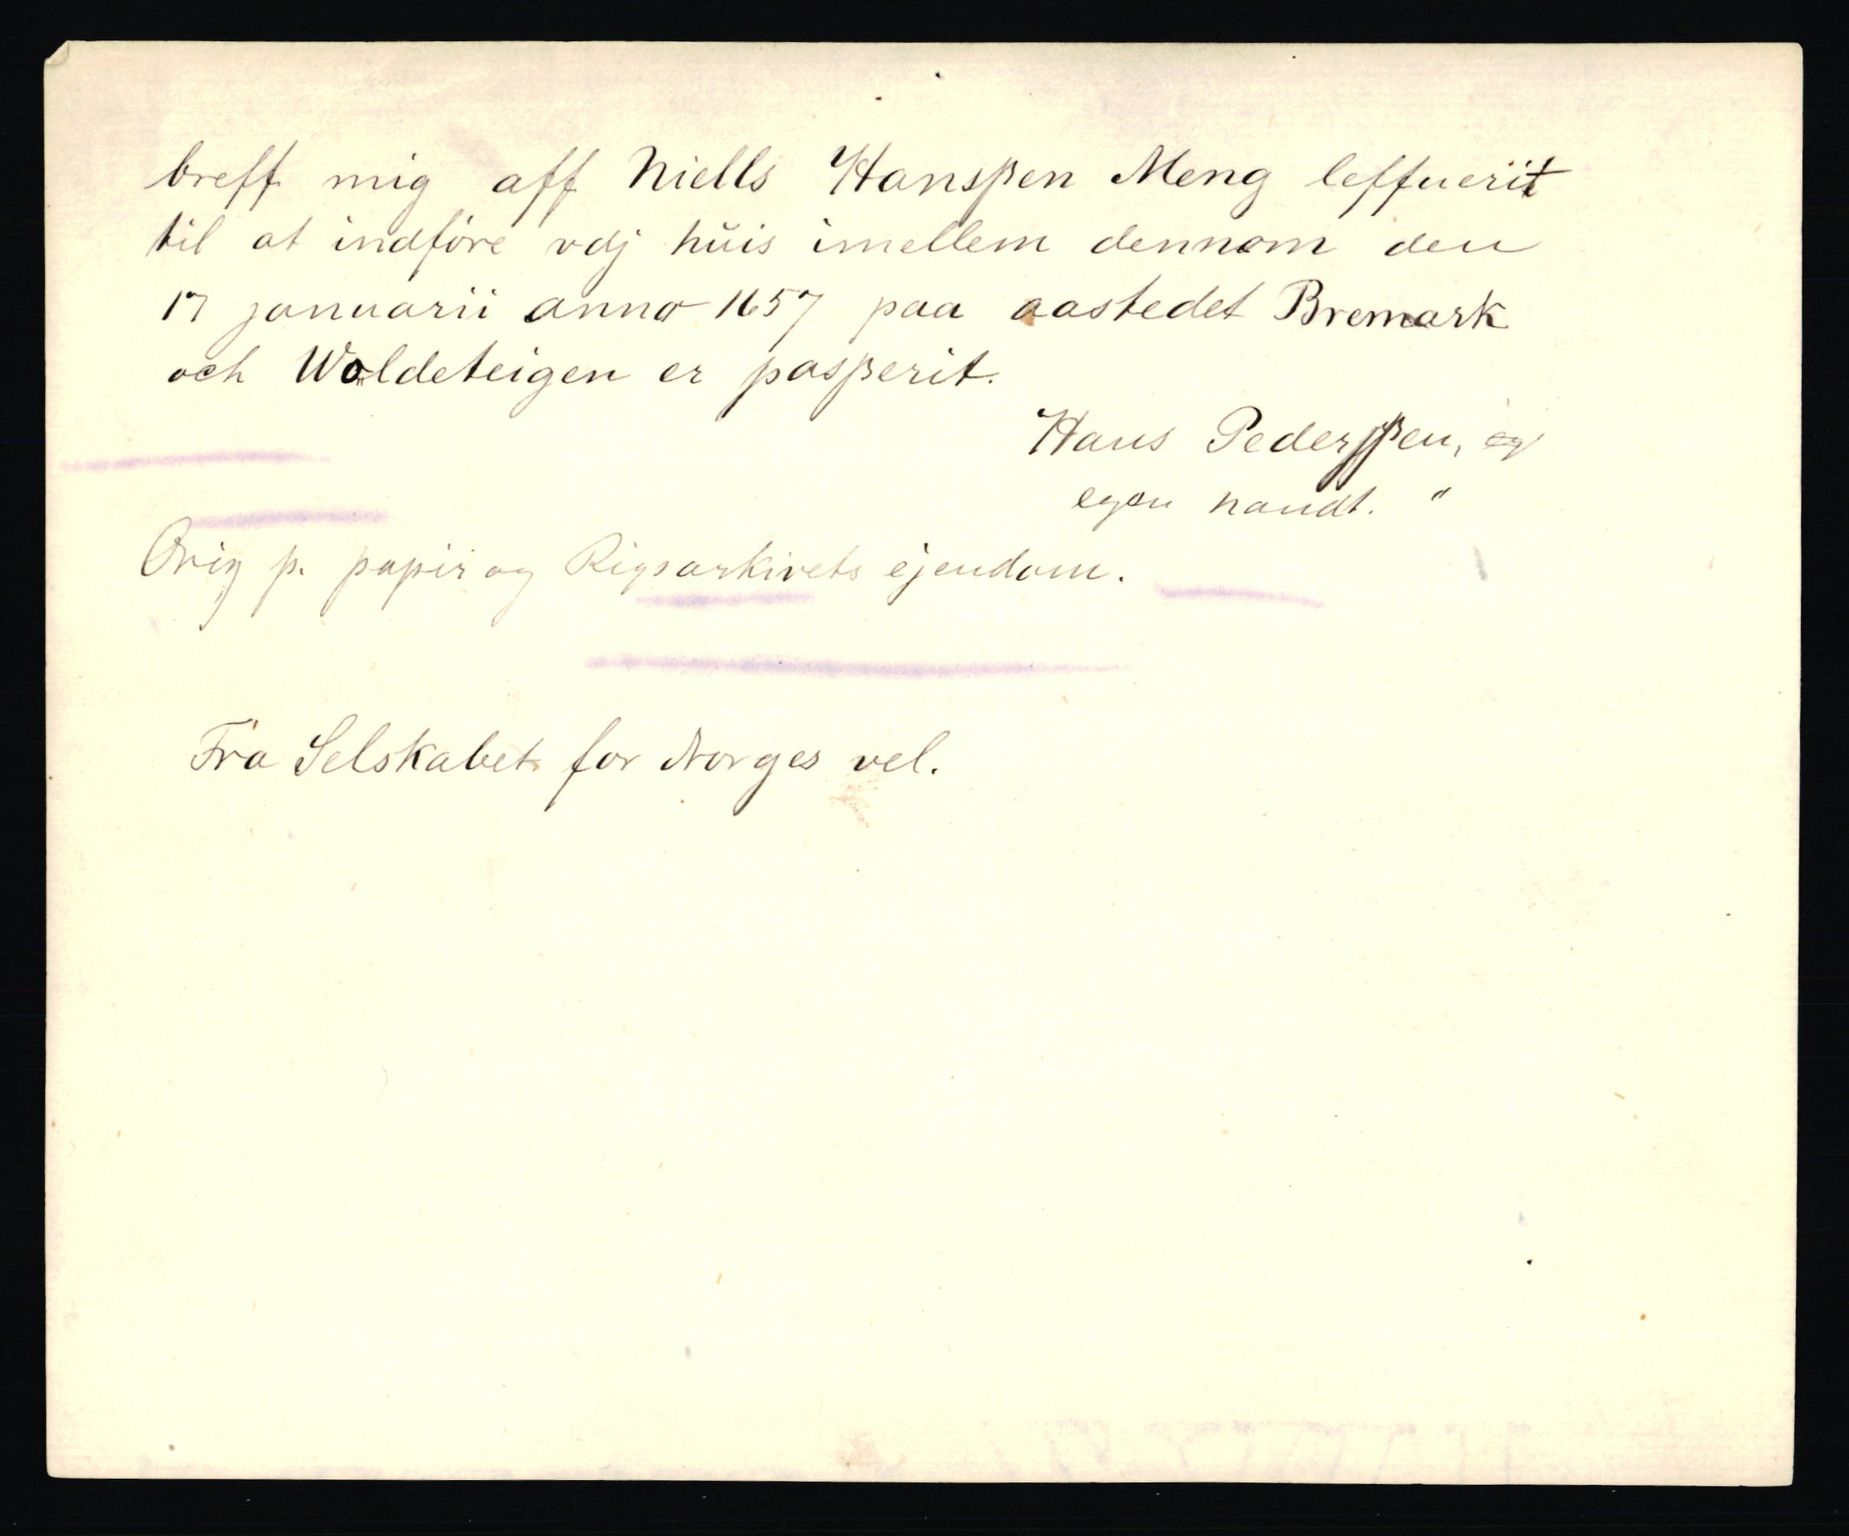 breff mig aff Niells Hansßen Meng leffuerit
til at indføre vdj huis imellem dennom den
17 januarii anno 1657 paa aastedet Bremark
och Woldeteigen er pasßerit.
Hans Pederßen,
egen handt. "
Orig p. papir og Rigsarkivets ejendom.
Fra Selskabet for Norges vel.